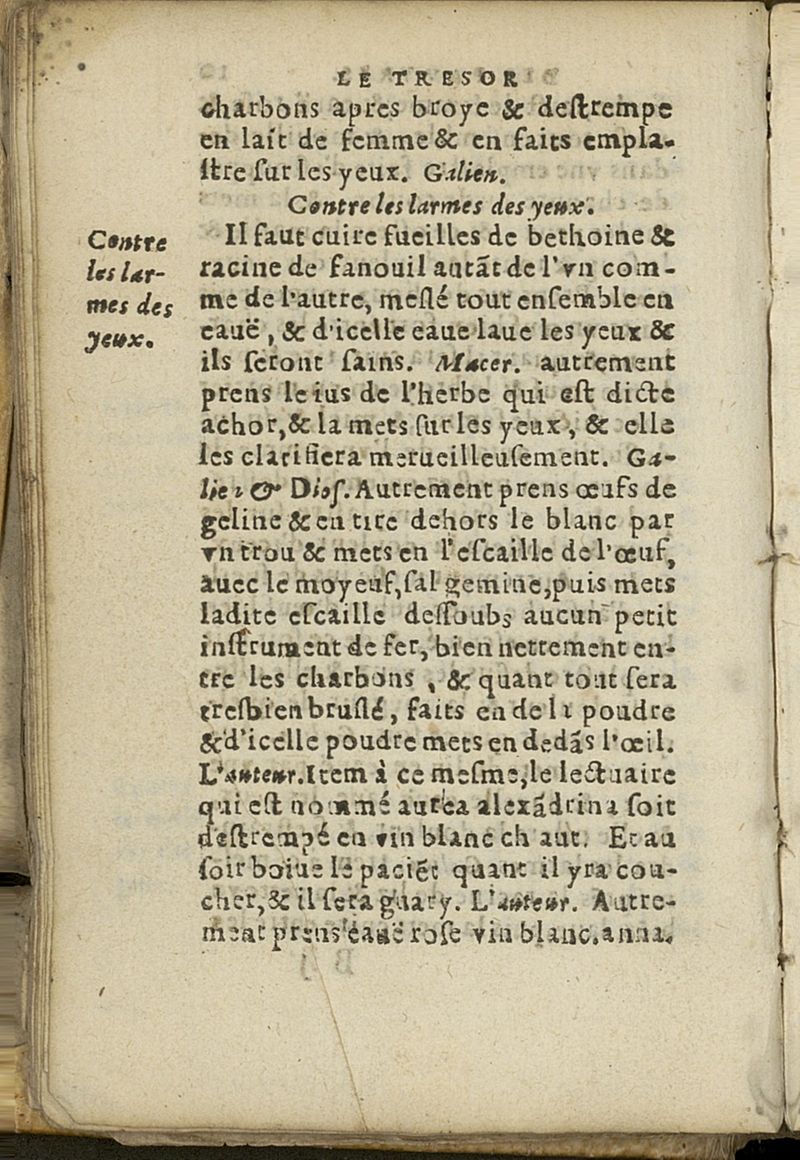 LE TRESOR
charbons apres broye & deſtrempe
en lait de femme & en faits empla-
ſtre ſur les yeux. Galien.
Contre les larmes des yeux.
Contre
les lar-
mes des
yeux.
Il faut cuire fueilles de bethoine &
racine de fanouil autāt de l'vn com-
me de l'autre, meſlé tout enſemble en
eauë, & d'icelle eaue laue les yeux &
ils ſeront ſains. Macer. autrement
prens le ius de l'herbe qui eſt dicte
achor, & la mets ſur les yeux, & elle
les clarifiera merueilleuſement. Ga-
lien & Dioſ. Autrement prens œufs de
geline & en tire dehors le blanc par
vn trou & mets en l'eſcaille de l'œuf,
auec le moyeuf, ſal gemine, puis mets
ladite eſcaille deſſoubs aucun petit
inſtrument de fer, bien nettement en-
tre les charbons, & quant tout ſera
treſbien bruſlé, faits en de la poudre
& d'icelle poudre mets en dedās l'œil.
L'auteur. Item à ce meſme, le lectuaire
qui eſt nommé aurea alexādrina ſoit
deſtrempé en vin blanc chaut. Et au
ſoir boiue le paciēt quant il yra cou-
cher, & il ſera guary. L'auteur. Autre-
ment prens eauë roſe vin blanc. anna.